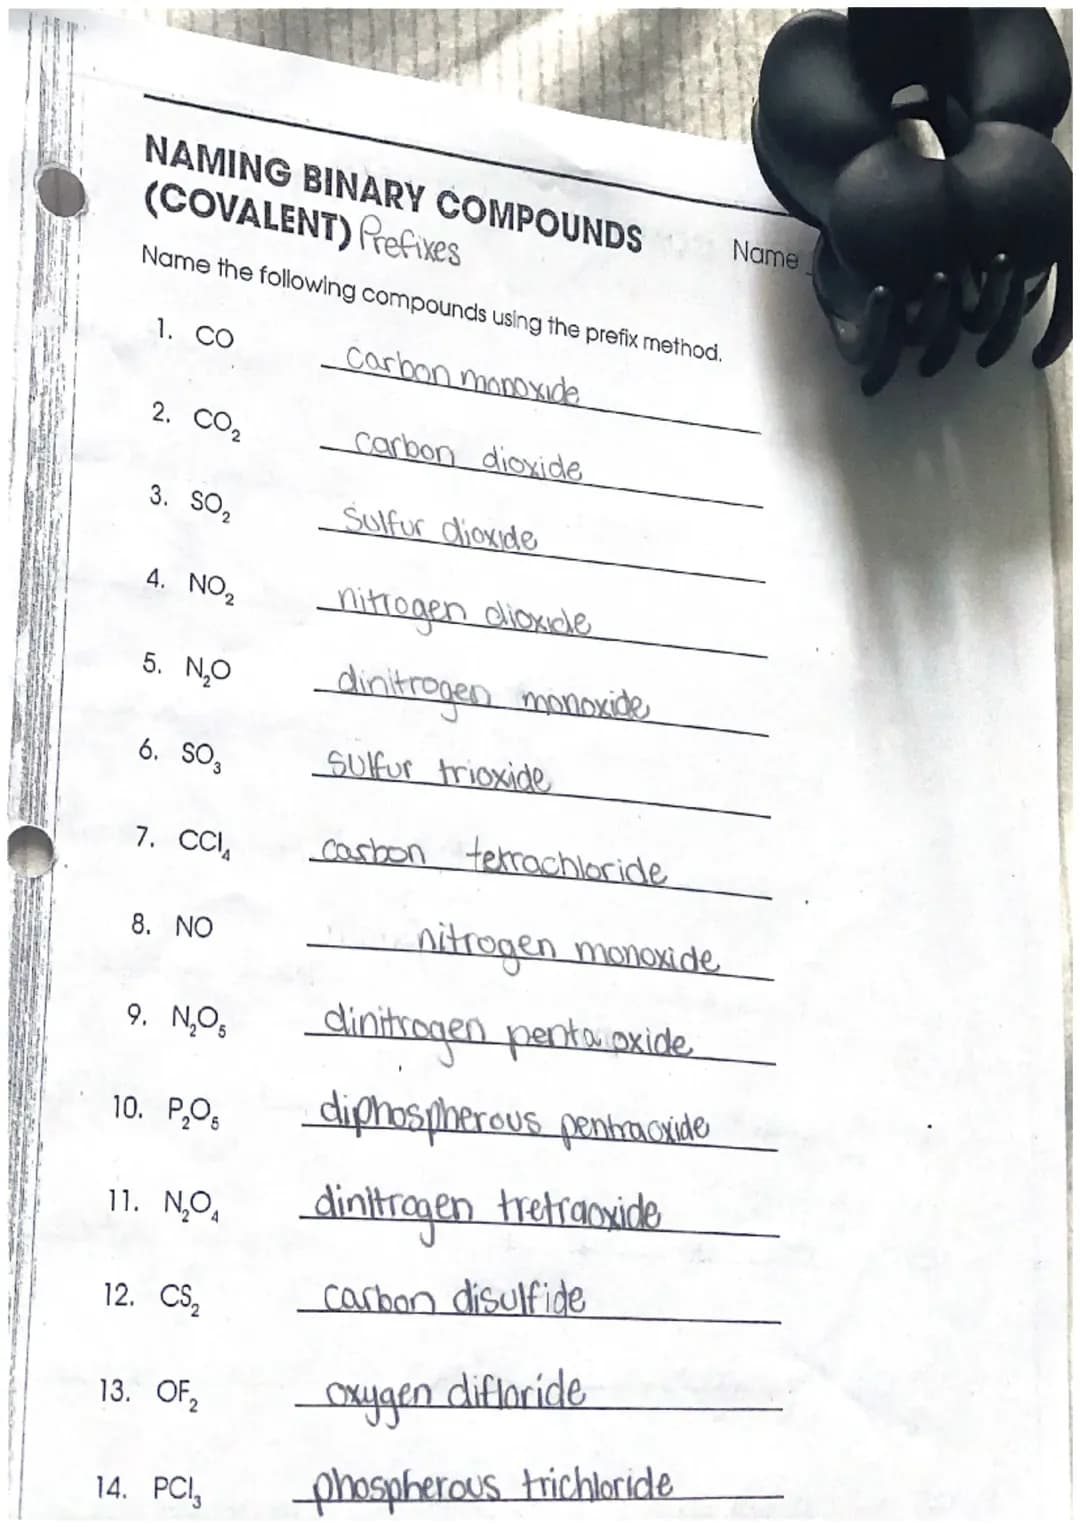 NAMING BINARY COMPOUNDS
(COVALENT) Prefixes
Name
Name the following compounds using the prefix method.
1. CO carbon monoxide
2. CO₂ carbon dioxide
3. SO₂ Sulfur dioxide
4. NO₂ nitrogen dioxide
5. N₂O dinitrogen monoxide
6. SO₃ sulfur trioxide
7. CCl₄ carbon tetrachloride
8. NO nitrogen monoxide
9. N₂O₅ dinitrogen penta oxide
10. P₂O₅ diphospherous pentraoxide
11. N₂O₄ dinitrogen tretraoxide
12. CS₂ carbon disulfide
13. OF₂ oxygen difloride
14. PCl₃ phospherous trichloride